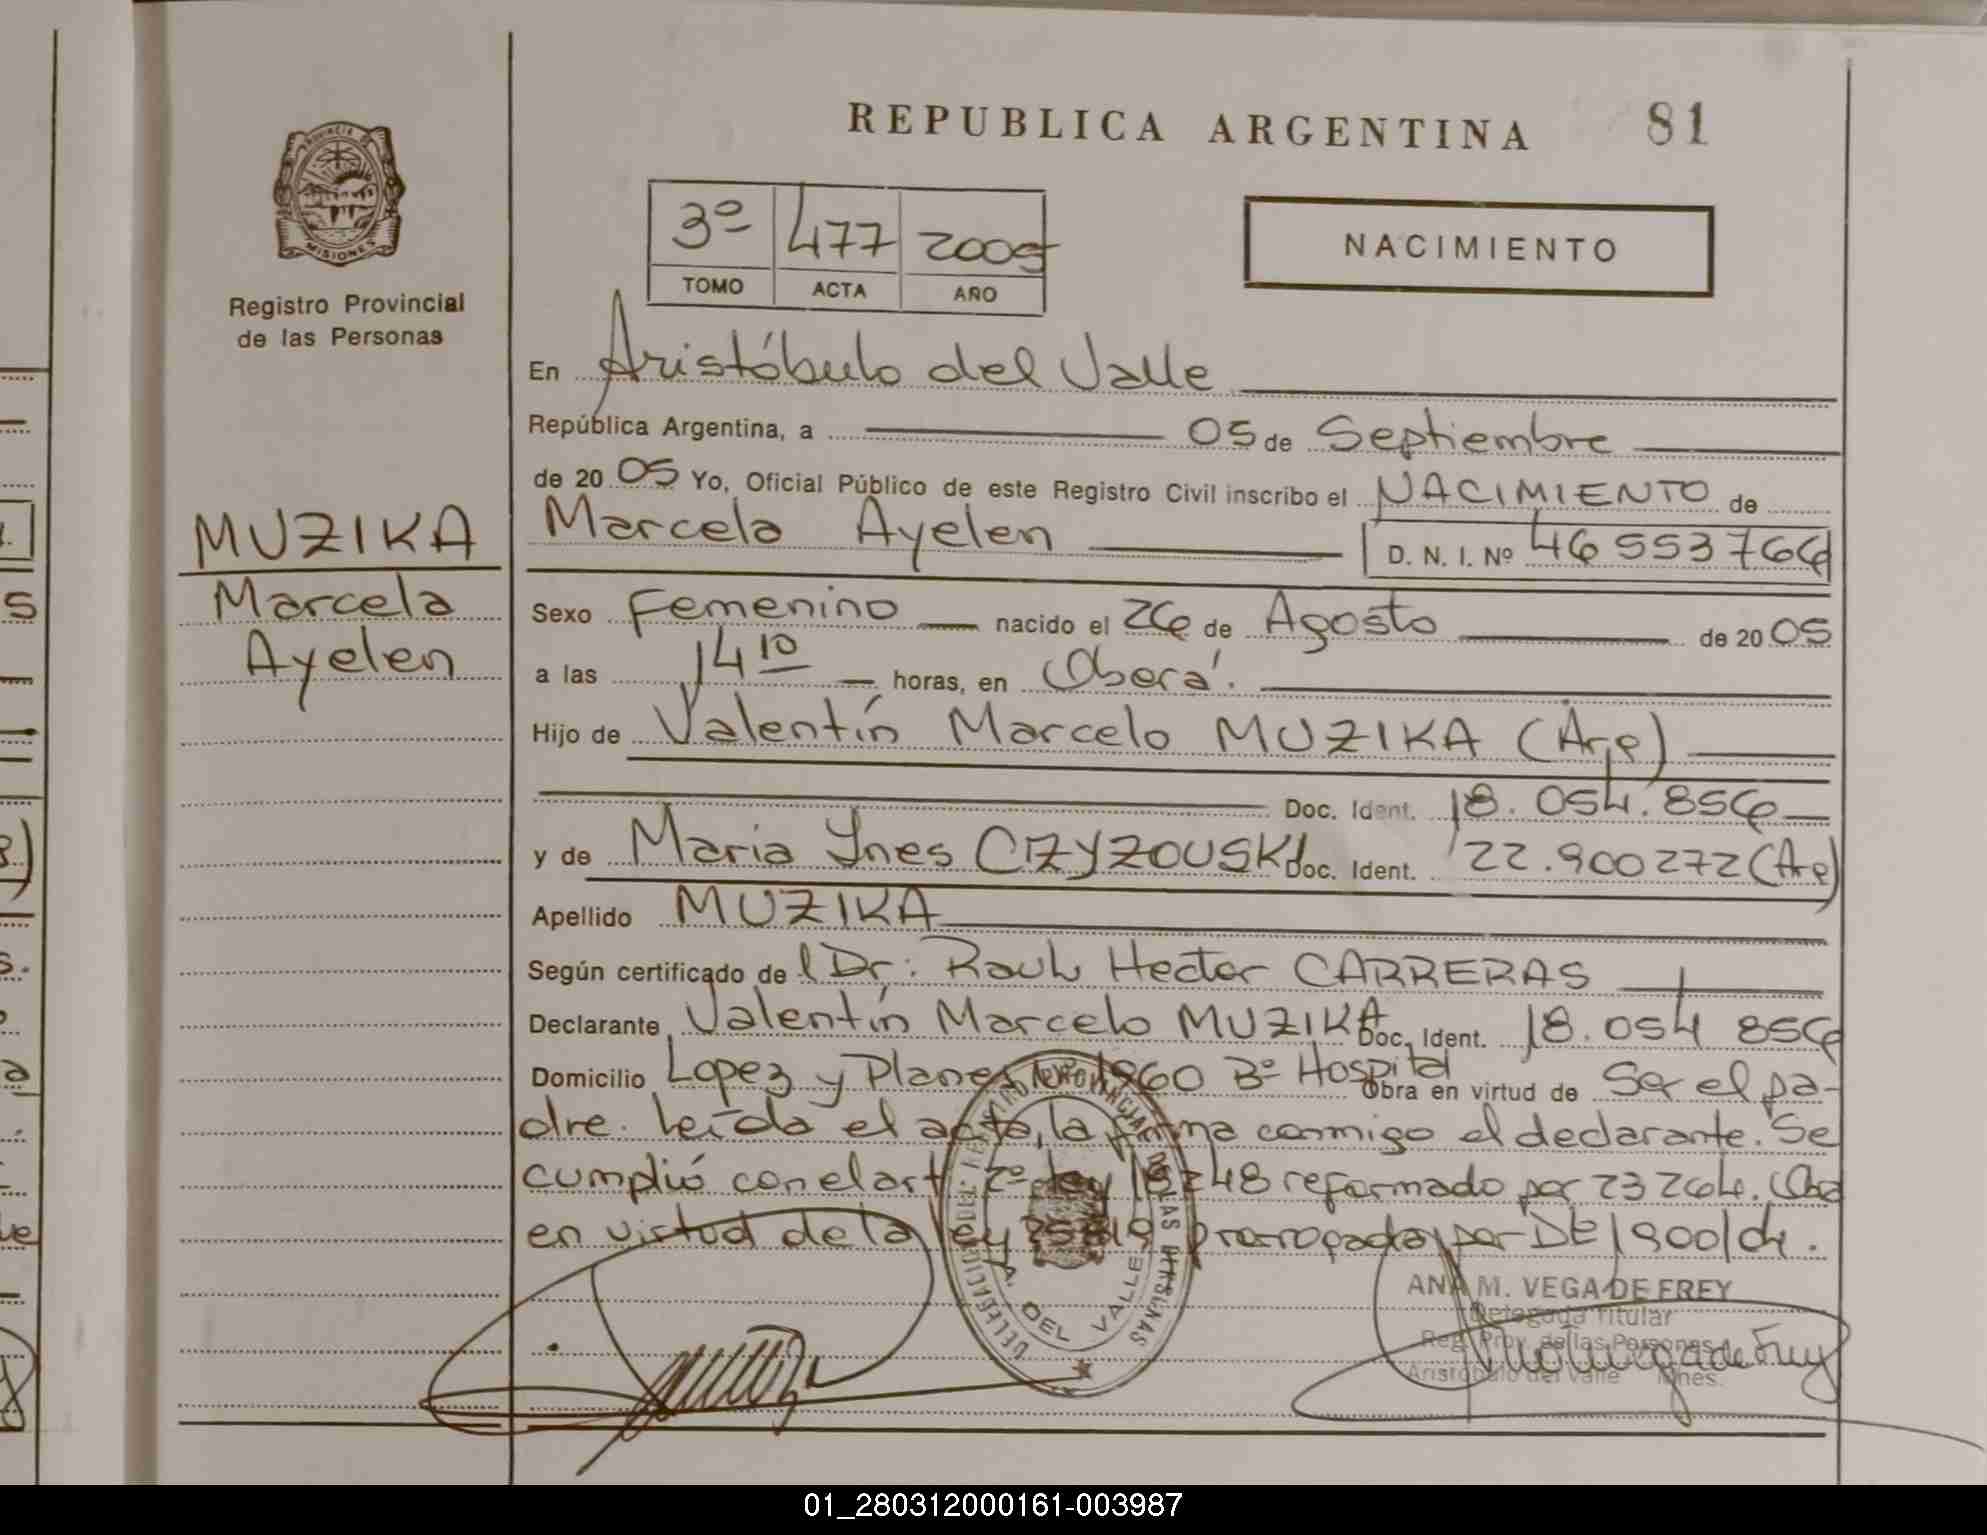 REPUBLICA ARGENTINA 81
PROVINCIA DE
MISIONES
Registro Provincial
de las Personas
3º 477 2005
TOMO ACTA AÑO
NACIMIENTO
En Aristóbulo del Valle
República Argentina, a 05 de Septiembre
de 20 05 Yo, Oficial Público de este Registro Civil inscribo el NACIMIENTO de
MUZIKA
Marcela
Ayelen
Marcela Ayelen D. N. I. Nº 46 553 766
Sexo Femenino nacido el 26 de Agosto de 20 05
a las 14 10 horas, en Oberá.
Hijo de Valentín Marcelo MUZIKA (Arg)
Doc. Ident. 18.054.856
y de Maria Ynes CZYZOUSKI Doc. Ident. 22.900272 (Arg)
Apellido MUZIKA
Según certificado de l Dr: Raul Hector CARRERAS
Declarante Valentín Marcelo MUZIKA Doc. Ident. 18.054 856
Domicilio Lopez y Planes 1960 Bº Hospital Obra en virtud de Ser el pa-
dre. Leída el acta, la firma conmigo el declarante. Se
cumplió con el art 2º ley 18248 reformado por 23264.
en virtud de la ley prorrogada por 1900/04.
REGISTRO PROVINCIAL DE LAS PERSONAS
A. DEL VALLE
ANA M. VEGA DE FREY
Delegada Titular
Reg. Prov. de las Personas
Aristóbulo del Valle Mnes.
01_280312000161-003987